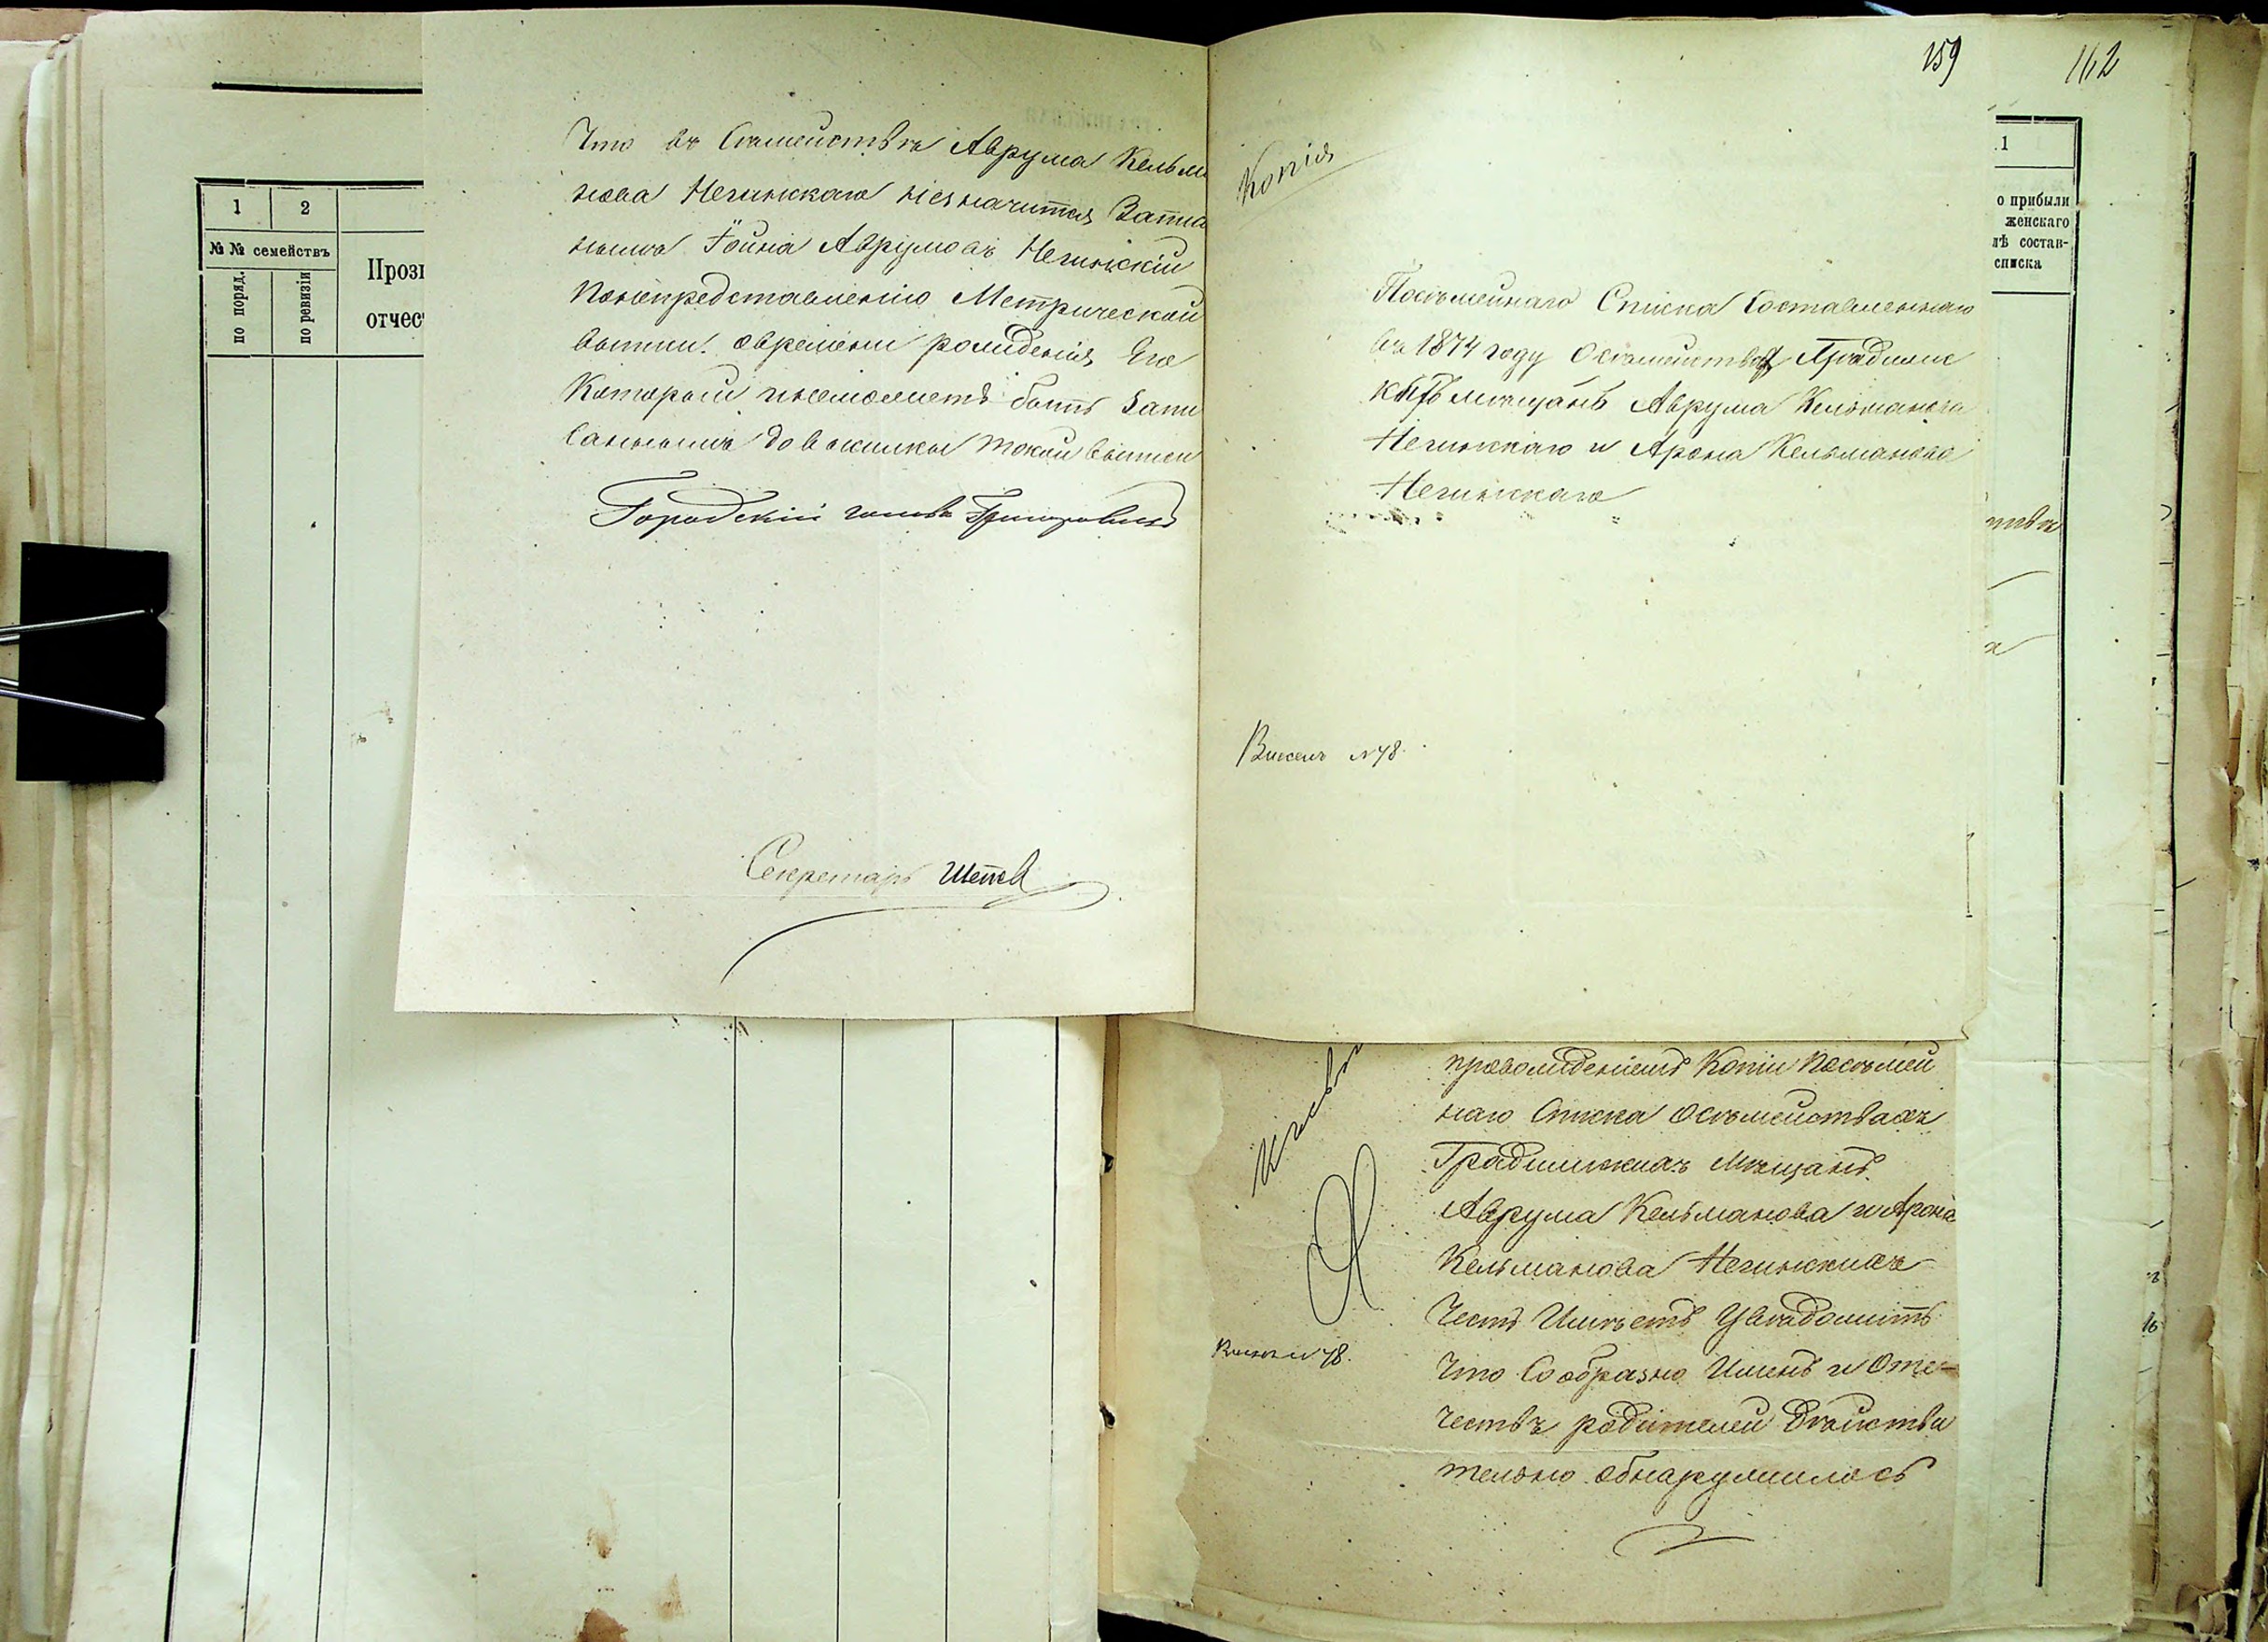 1
2
№ № семействъ
по поряд.
по ревизіи
Прозв
отчес
Что въ Семействѣ Аврума Кельма
нова Негинскаго не значится Запи
нымъ Іойна Аврумовъ Негинскій
по непредставленію Метрической
выписи о времени рожденія Его
Который и неможетъ быть Запи
саннымъ до высылки такой выписи
Городскій голова Григоровичъ
Секретарь
159
162
Копія
Посѣмейнаго Списка Составленнаго
въ 1874 году о семействахъ Градижс
кихъ мѣщанъ Аврума Кельманова
Негинскаго и Арона Кельманова
Негинскаго
№ 78.
1
о прибыли
женскаго
лѣ состав-
списка
препровожденіемъ Копіи Посѣмей
наго Списка о сѣмействахъ
Градижскихъ Мѣщанъ
Аврума Кельманова и Арона
Кельманова Негинскихъ
Честь Имѣетъ Увѣдомить
Что Сообразно Именъ и Оте-
чествъ родителей Дѣйстви
тельно обнаружилось
№ 78.